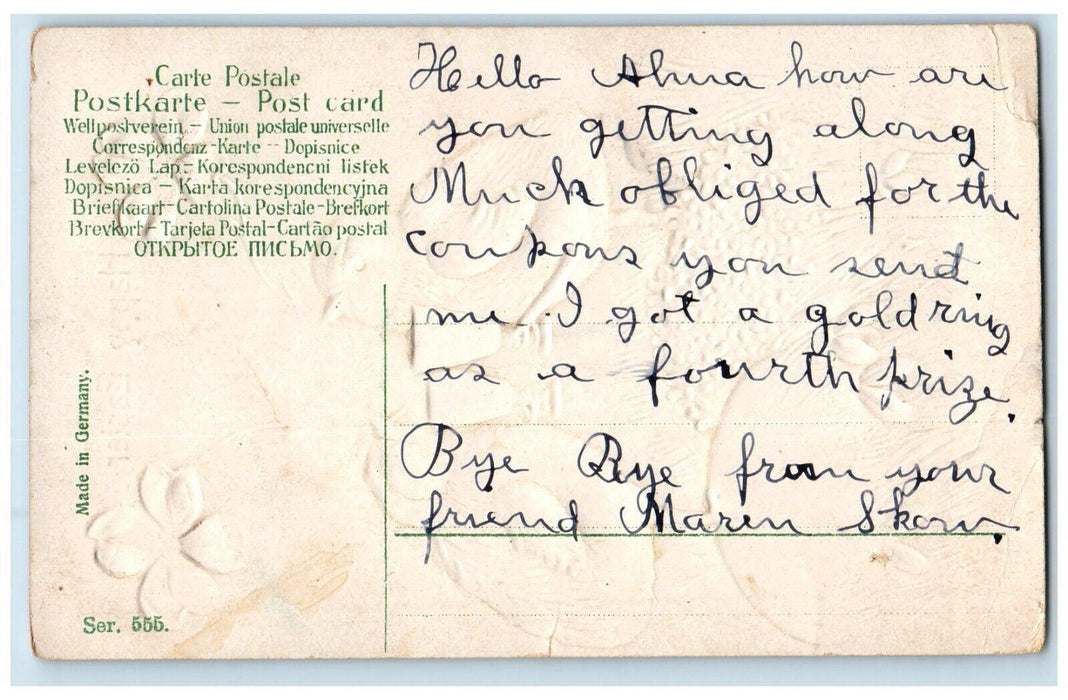 Carte Postale
Postkarte – Post card
Weltpostverein – Union postale universelle
Correspondenz-Karte -- Dopisnice
Levelező Lap. – Korespondencni listek
Dopisnica – Karta korespondencyjna
Briefkaart – Cartolina Postale – Brefkort
Brevkort – Tarjeta Postal – Cartão postal
ОТКРЫТОЕ ПИСЬМО.
Made in Germany.
Ser. 555.
Hello Alma how are
you getting along
Much obliged for the
coupons you send
me. I got a gold ring
as a fourth prize.
Bye Bye from your
friend Maren Skow.